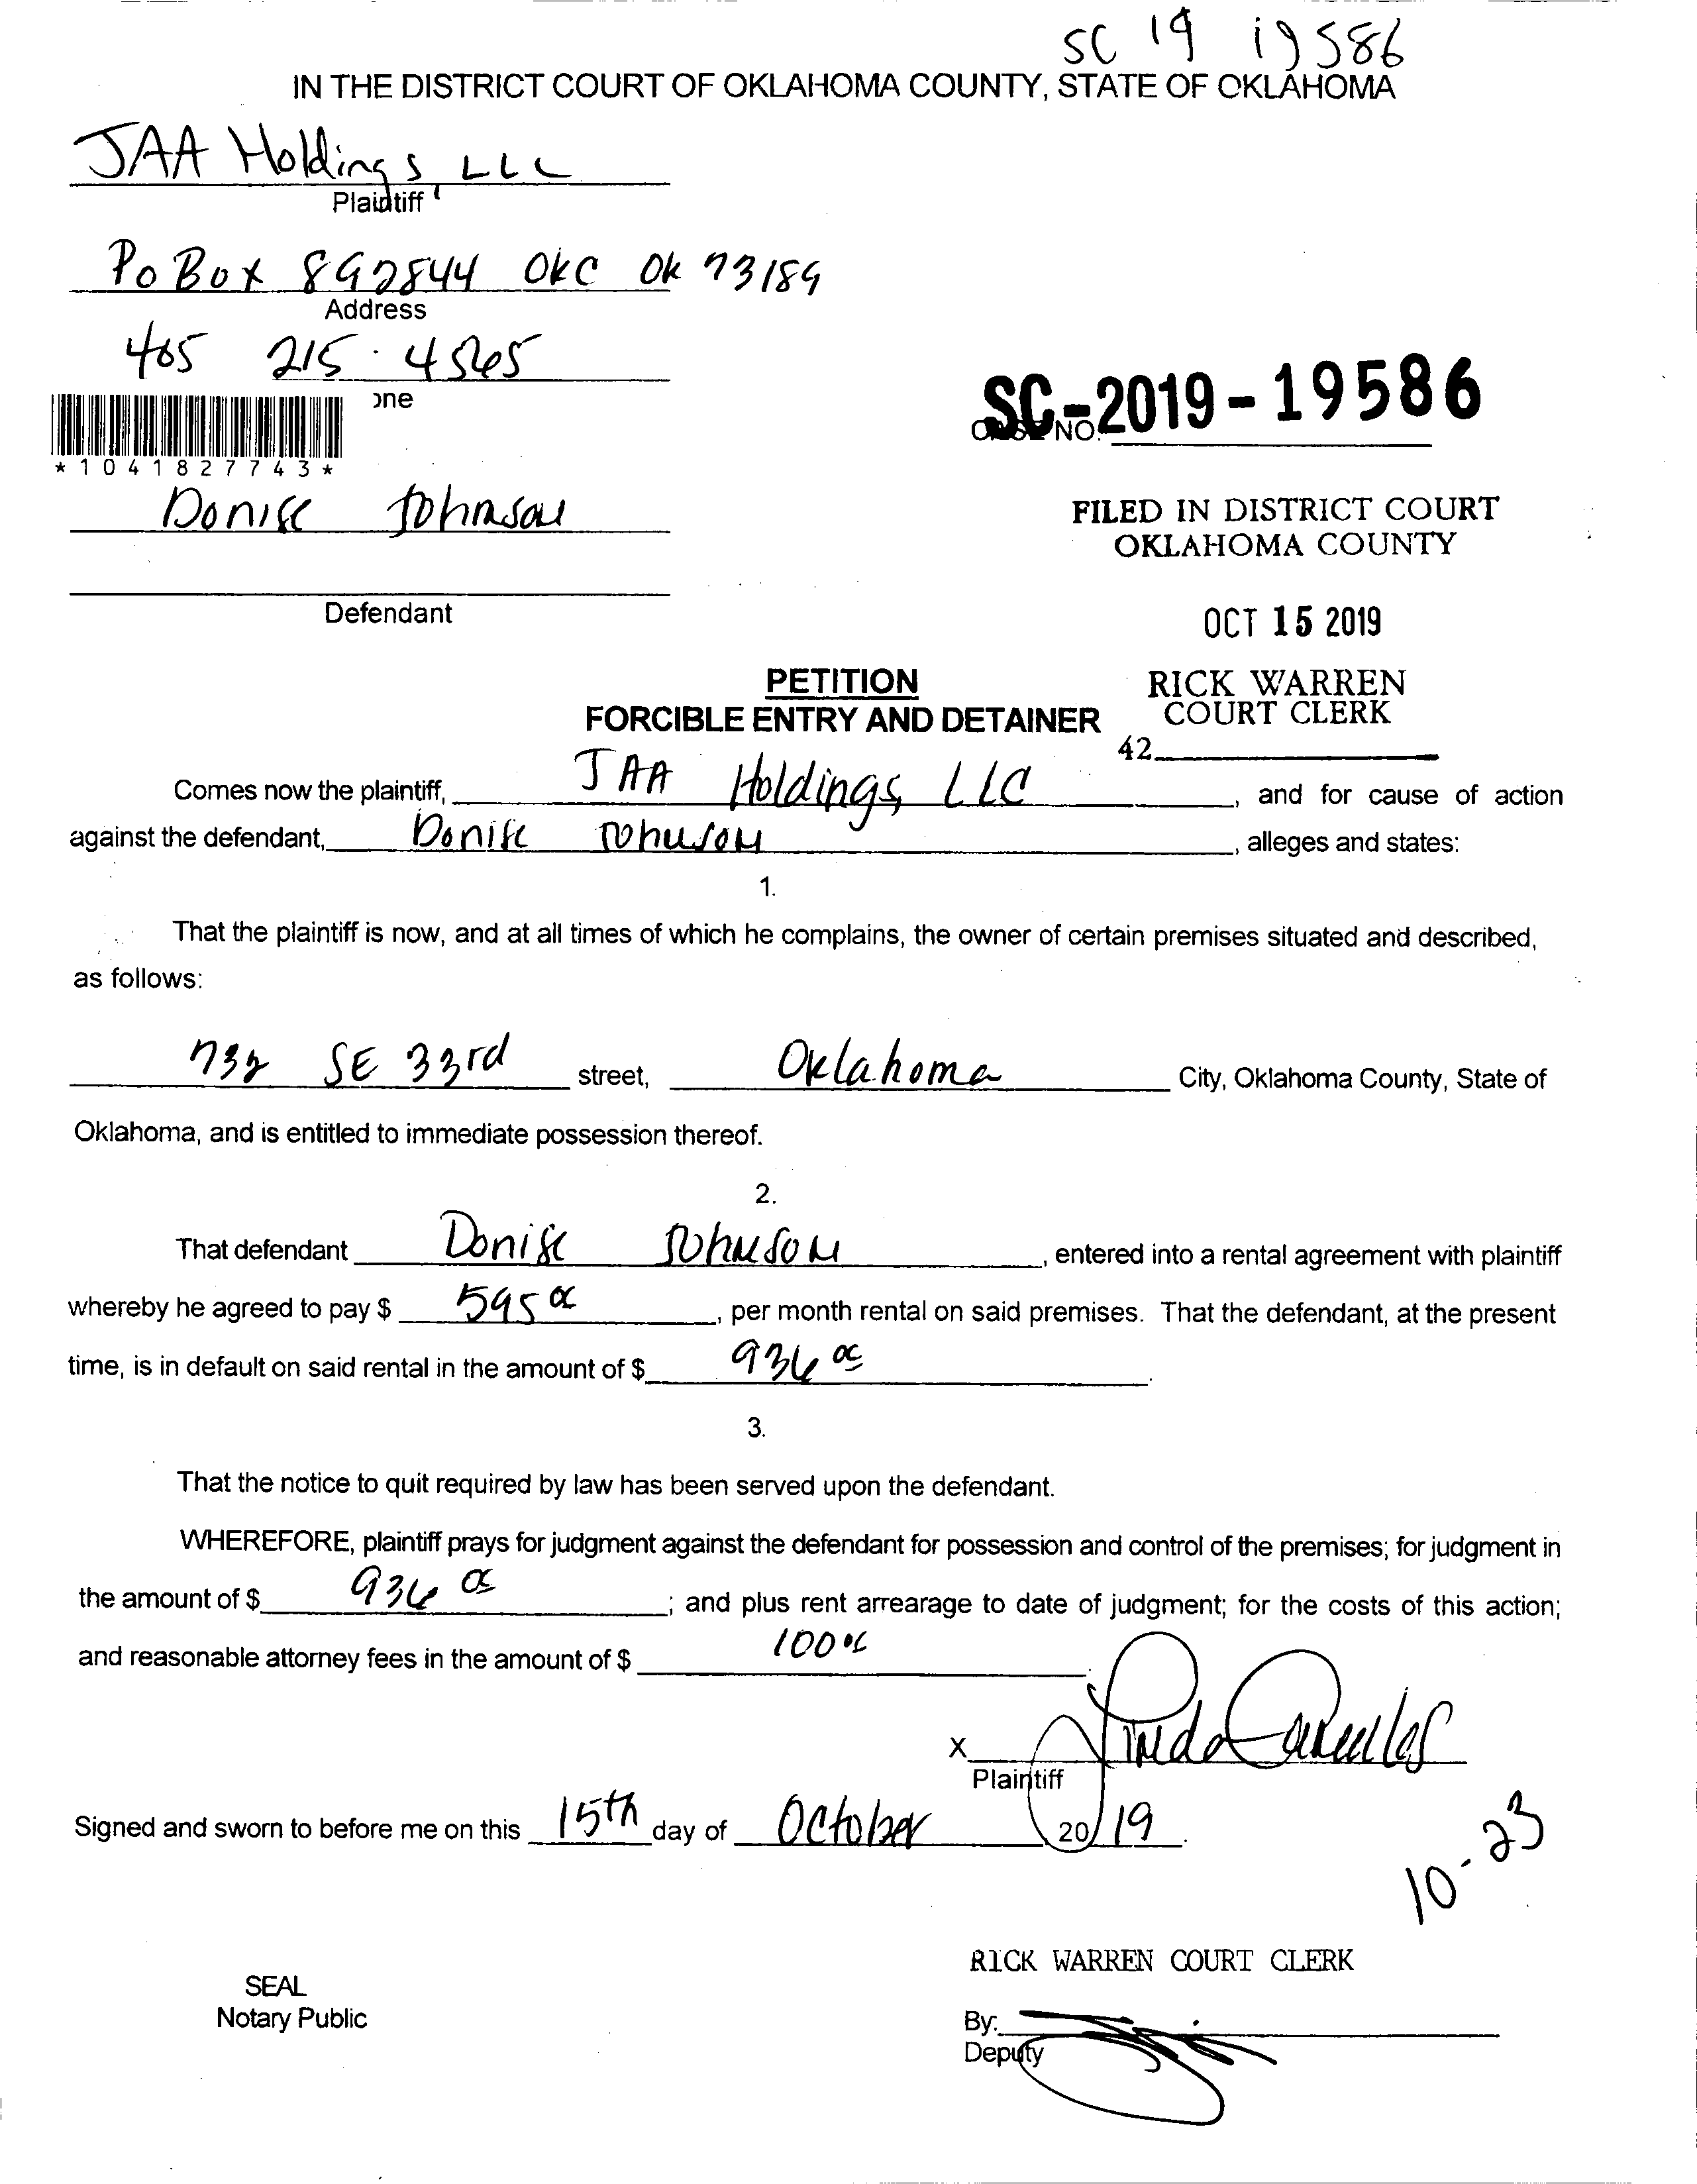 SC 19 19586
IN THE DISTRICT COURT OF OKLAHOMA COUNTY, STATE OF OKLAHOMA
JAA Holdings LLC
Plaintiff
PO Box 892844 OKC OK 73189
Address
405 215-4565
one
*1041827743*
SC-2019-19586
NO.
Donise Johnson
Defendant
FILED IN DISTRICT COURT
OKLAHOMA COUNTY
OCT 15 2019
RICK WARREN
COURT CLERK
42
PETITION
FORCIBLE ENTRY AND DETAINER
Comes now the plaintiff, JAA Holdings, LLC, and for cause of action
against the defendant, Donise Johnson, alleges and states:
1.
That the plaintiff is now, and at all times of which he complains, the owner of certain premises situated and described,
as follows:
732 SE 33rd street, Oklahoma City, Oklahoma County, State of
Oklahoma, and is entitled to immediate possession thereof.
2.
That defendant Donise Johnson, entered into a rental agreement with plaintiff
whereby he agreed to pay $ 595 00, per month rental on said premises. That the defendant, at the present
time, is in default on said rental in the amount of $ 936 00.
3.
That the notice to quit required by law has been served upon the defendant.
WHEREFORE, plaintiff prays for judgment against the defendant for possession and control of the premises; for judgment in
the amount of $ 936 00; and plus rent arrearage to date of judgment; for the costs of this action;
and reasonable attorney fees in the amount of $ 100 00.
X
Plaintiff
Signed and sworn to before me on this 15th day of October 2019.
10-23
RICK WARREN COURT CLERK
SEAL
Notary Public
By:
Deputy